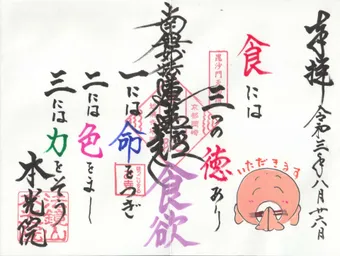 奉拝 令和三年八月廿六日
食には
三つの徳あり
いただきます
毘沙門天
京都岡崎
南無妙法蓮華経
食欲
一には命をつぎ
二には色をまし
三には力をそう
本光院